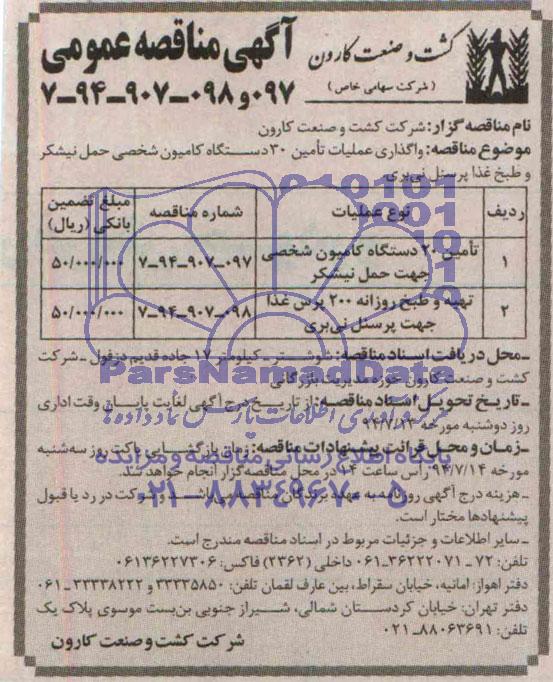 کشت و صنعت کارون
(شرکت سهامی خاص)
آگهی مناقصه عمومی
۰۹۷ و ۰۹۸-۹۰۷-۹۴-۷
نام مناقصه گزار: شرکت کشت و صنعت کارون
موضوع مناقصه: واگذاری عملیات تأمین ۳۰ دستگاه کامیون شخصی حمل نیشکر
و طبخ غذا پرسنل نی‌بری.
ردیف نوع عملیات شماره مناقصه مبلغ تضمین بانکی (ریال)
۱ تأمین ۲۰ دستگاه کامیون شخصی جهت حمل نیشکر ۰۹۷-۹۰۷-۹۴-۷ ۵۰/۰۰۰/۰۰۰
۲ تهیه و طبخ روزانه ۲۰۰ پرس غذا جهت پرسنل نی‌بری ۰۹۸-۹۰۷-۹۴-۷ ۵۰/۰۰۰/۰۰۰
ـ محل دریافت اسناد مناقصه: شوشتر ـ کیلومتر ۱۷ جاده قدیم دزفول ـ شرکت
کشت و صنعت کارون حوزه مدیریت بازرگانی
ـ تاریخ تحویل اسناد مناقصه: از تاریخ درج آگهی لغایت پایان وقت اداری
روز دوشنبه مورخه ۹۴/۷/۱۳
ـ زمان و محل قرائت پیشنهادات مناقصه: زمان بازگشایی پاکت روز سه‌شنبه
مورخه ۹۴/۷/۱۴ رأس ساعت ۱۴ در محل مناقصه‌گزار انجام خواهد شد.
ـ هزینه درج آگهی روزنامه به عهده برندگان مناقصه می‌باشد و شرکت در رد یا قبول
پیشنهادها مختار است.
ـ سایر اطلاعات و جزئیات مربوط در اسناد مناقصه مندرج است.
تلفن: ۷۲ ـ ۳۶۲۲۲۰۷۱-۰۶۱ داخلی (۲۳۶۲) فاکس: ۰۶۱۳۶۲۲۷۳۰۶
دفتر اهواز: امانیه، خیابان سقراط، بین عارف لقمان تلفن: ۳۳۳۳۵۸۵۰ و ۳۳۳۳۸۲۲۲-۰۶۱
دفتر تهران: خیابان کردستان شمالی، شیراز جنوبی بن‌بست موسوی پلاک یک
تلفن: ۸۸۰۶۳۶۹۱-۰۲۱
شرکت کشت و صنعت کارون
ParsNamadData
پایگاه اطلاع رسانی مناقصه و مزایده
۰۲۱-۸۸۳۴۹۶۷۰-۵